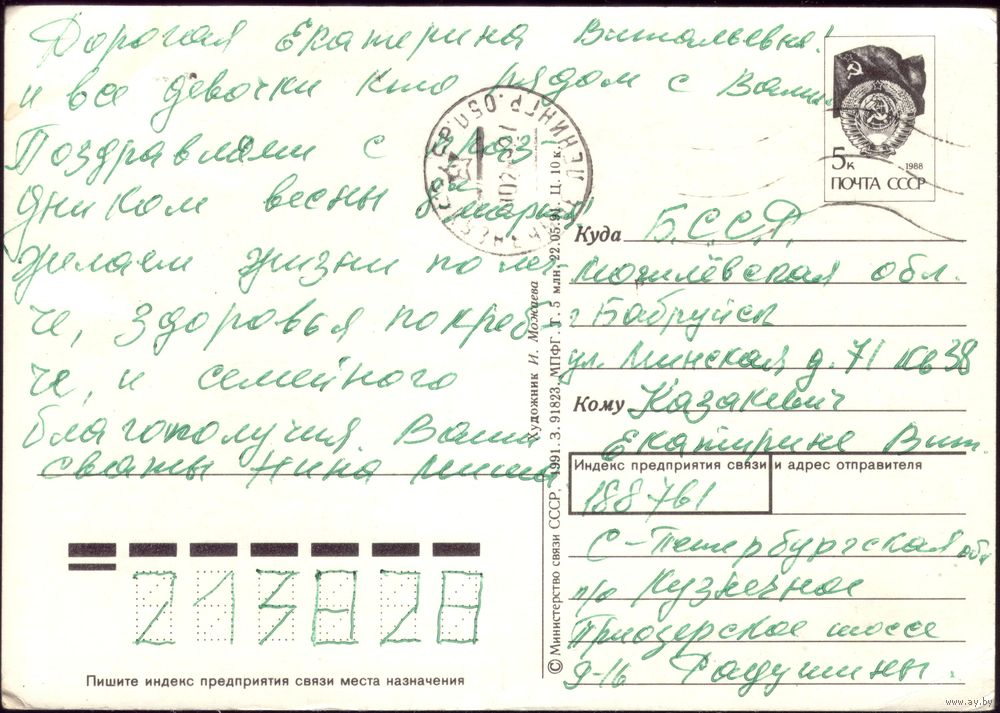 Дорогая Екатерина Витальевна!
и все девочки кто рядом с Вами
Поздравляем с праз
дником весны 8 марта,
желаем жизни по лег
че, здоровья покреп
че, и семейного
благополучия. Ваши
сваты Нина Миша
5к 1988
ПОЧТА СССР
Куда Б.С.С.Р.
Могилёвская обл.
г Бабруйск
ул. Минская д. 71 кв 38
Кому Казакевич
Екатирине Вит.
Индекс предприятия связи и адрес отправителя
188761
С-Петербургская обл
п/о Кузнечное
Приозерское шоссе
9-16 Радушины.
213828
Пишите индекс предприятия связи места назначения
© Министерство связи СССР, 1991. З. 91823. МПФГ. Т. 5 млн, 22.05.91. Ц. 10 к.
Художник И. Можаева
ЛЕНИНГР. ОБЛ.
www.ay.by